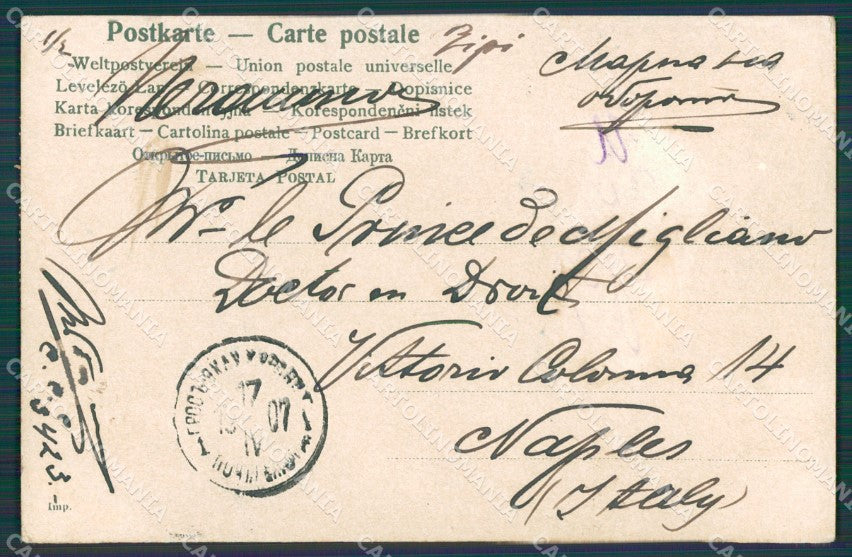 1/2
Postkarte — Carte postale
Weltpostverein — Union postale universelle
Levelező-Lap — Correspondenzkarte — Dopisnice
Karta korespondencyjna — Korespondenční lístek
Briefkaart — Cartolina postale — Postcard — Brefkort
Открытое письмо — Дописна Карта
TARJETA POSTAL
Марка на
обороте
Mr le Prince de Migliano
Doctor en Droit
Vittorio Colonna 14
Naples
(Italy)
17
IV
07
Imp.
CARTOLINOMANIA